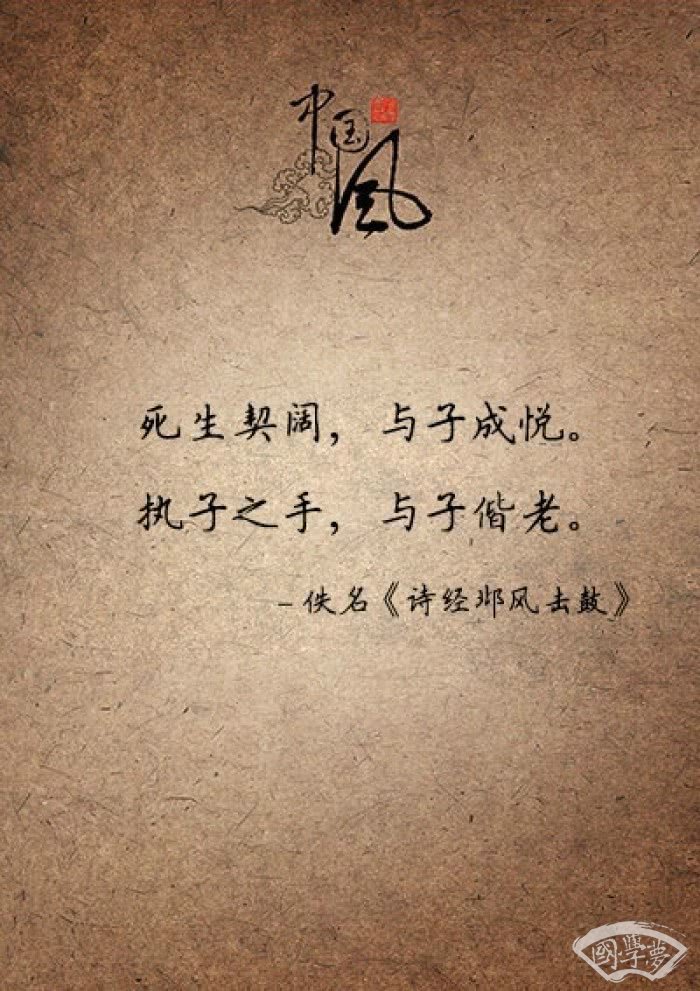 中国风
死生契阔，与子成悦。
执子之手，与子偕老。
–佚名《诗经邶风击鼓》
國學夢